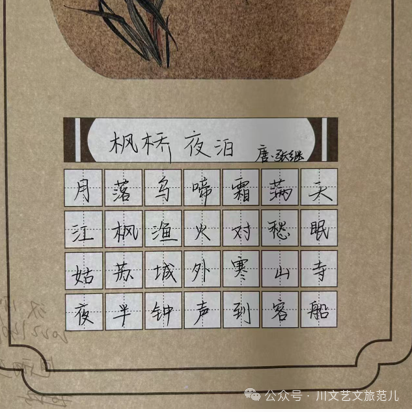 枫桥夜泊
唐·张继
月落乌啼霜满天
江枫渔火对愁眠
姑苏城外寒山寺
夜半钟声到客船
公众号·川文艺文旅范儿